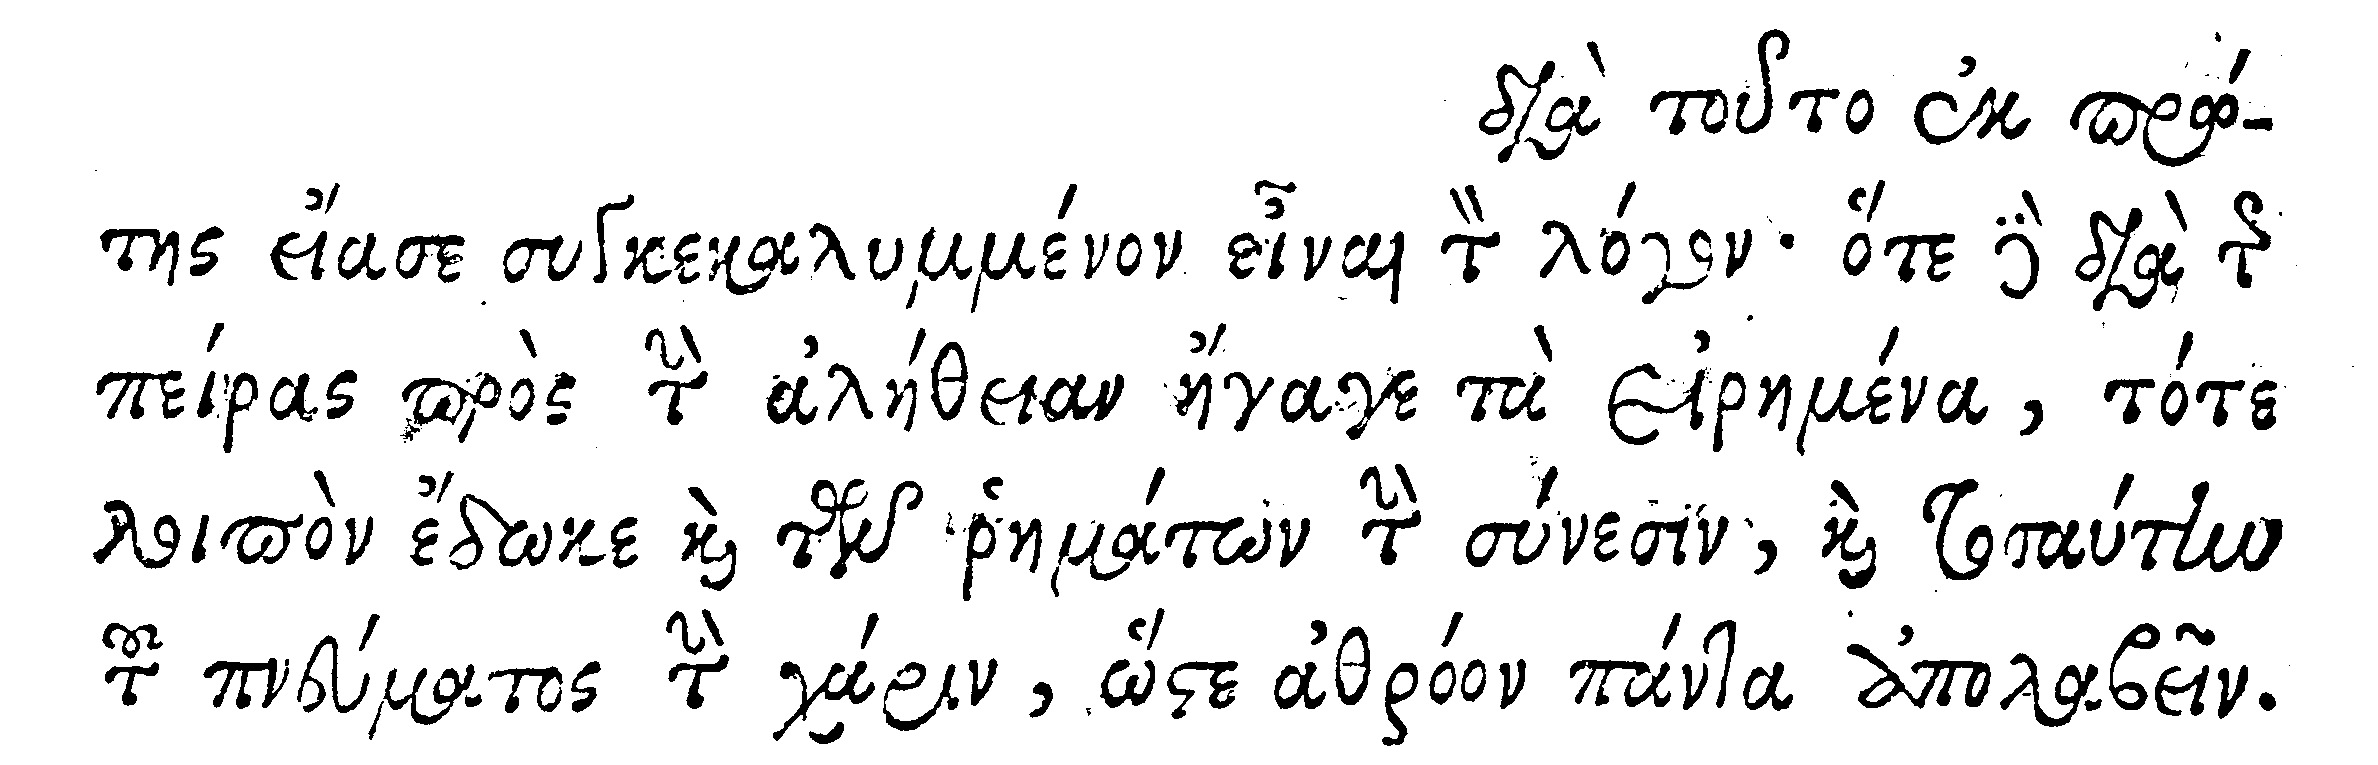 διὰ τοῦτο ἐκ πρώ-
της εἴασε συγκεκαλυμμένον εἶναι τὸν λόγον· ὅτε δὲ διὰ τῆς
πείρας πρὸς τὴν ἀλήθειαν ἤγαγε τὰ εἰρημένα, τότε
λοιπὸν ἔδωκε καὶ τῶν ῥημάτων τὴν σύνεσιν, καὶ τοσαύτην
τοῦ πνεύματος τὴν χάριν, ὥστε ἀθρόον πάντα ἀπολαβεῖν.